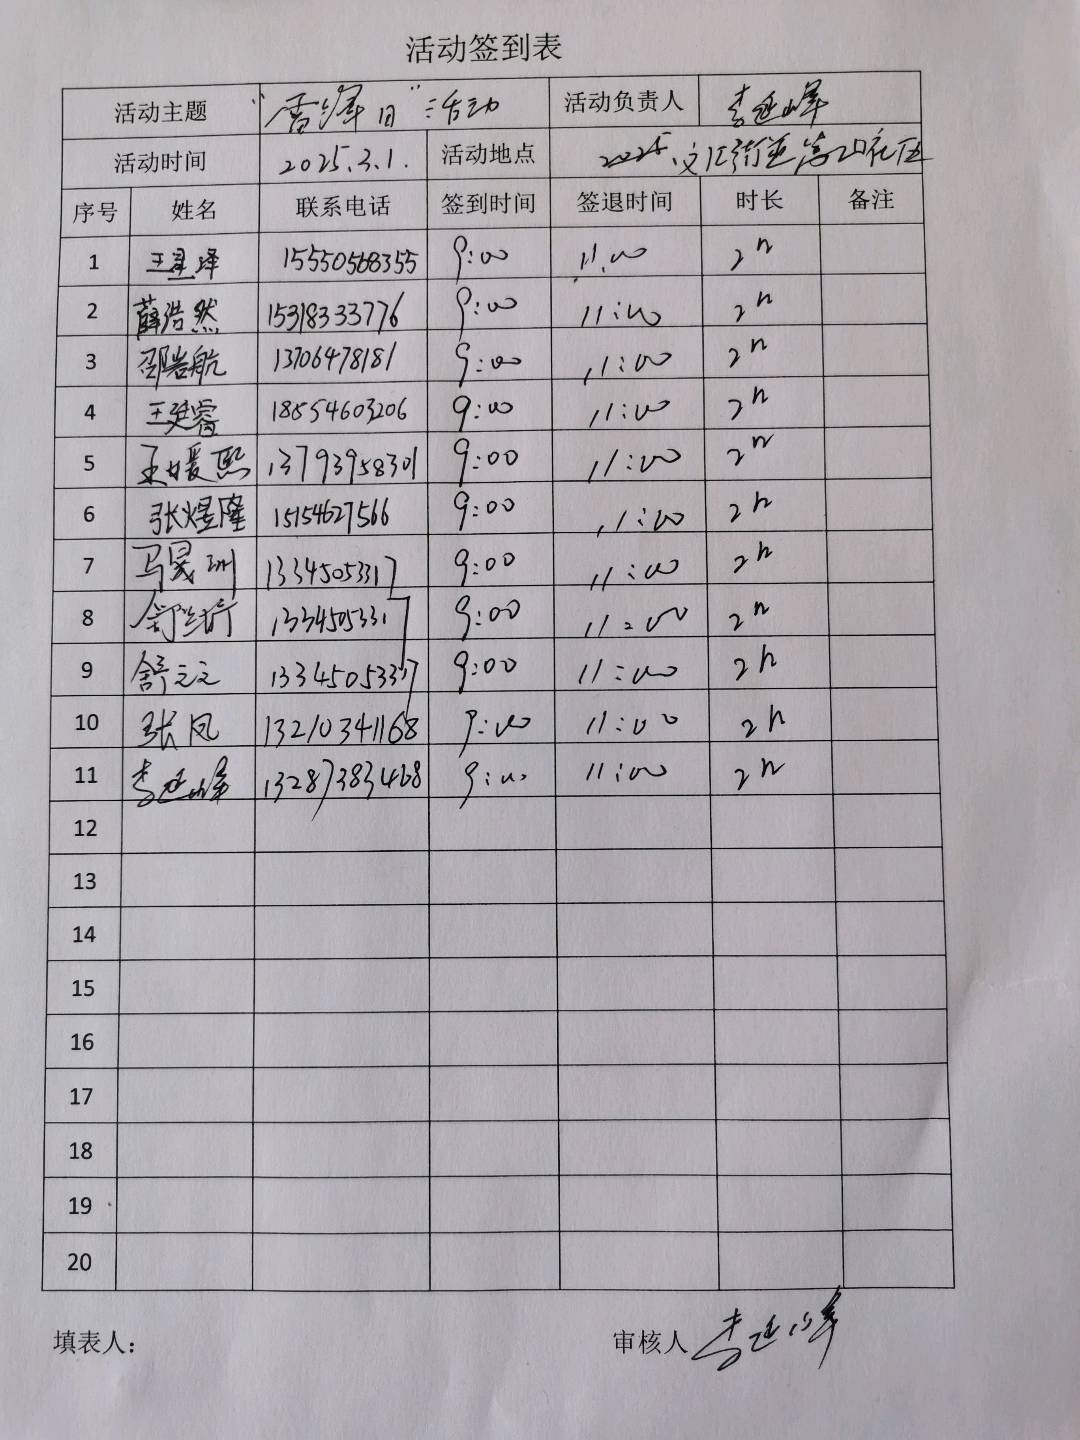 活动签到表
活动主题 "雷锋日"活动 活动负责人 李延峰
活动时间 2025.3.1. 活动地点 文汇街道 社区
序号 姓名 联系电话 签到时间 签退时间 时长 备注
1 王星泽 15550568355 9:00 11:00 2h
2 薛浩然 15318333776 9:00 11:00 2h
3 邵岩航 13706478181 9:00 11:00 2h
4 王廷睿 18554603206 9:00 11:00 2h
5 王媛熙 13793958301 9:00 11:00 2h
6 张煜隆 15154627566 9:00 11:00 2h
7 马昊洲 13345053317 9:00 11:00 2h
8 13345053317 9:00 11:00 2h
9 舒元元 13345053317 9:00 11:00 2h
10 张凤 13210341168 9:00 11:00 2h
11 李延峰 13287383468 9:00 11:00 2h
12
13
14
15
16
17
18
19
20
填表人： 审核人 李延峰